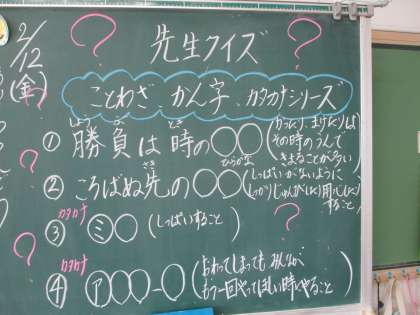 2/12
(金)
先生クイズ
ことわざ、かん字、カタカナシリーズ
① 勝負は時の○○ (かったり、まけたりは
しょうぶ とき
その時のうんで
きまることが多い)
② ころばぬ先の○○ (しっぱいがないように
さき ひらがな
しっかりじゅんび(したり)用心(したり)
すること)
カタカナ
③ ミ○ (しっぱいすること)
カタカナ
④ ア○○ー○ (おわってしまっても みんなが、
もう一回やってほしい時にやること)